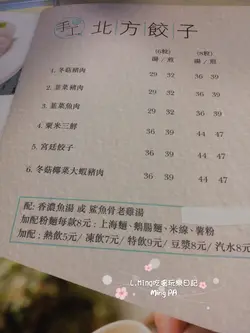 手工北方餃子
(6粒) (8粒)
湯/煎 湯/煎
1. 冬菇豬肉 29 32 36 39
2. 韮菜豬肉 29 32 36 39
3. 韮菜魚肉 29 32 36 39
4. 粟米三鮮 36 39 44 47
5. 宮廷餃子 36 39 36 39
6. 冬菇椰菜大蝦豬肉 36 39 44 47
配: 香濃魚湯 或 鯊魚骨老雞湯
加配粉麵每款8元: 上海麵、鵝腸麵、米線、薯粉
加配: 熱飲5元/ 凍飲7元/ 特飲9元/ 豆漿8元/ 汽水8元
L.Ming吃喝玩樂日記
Ming PA